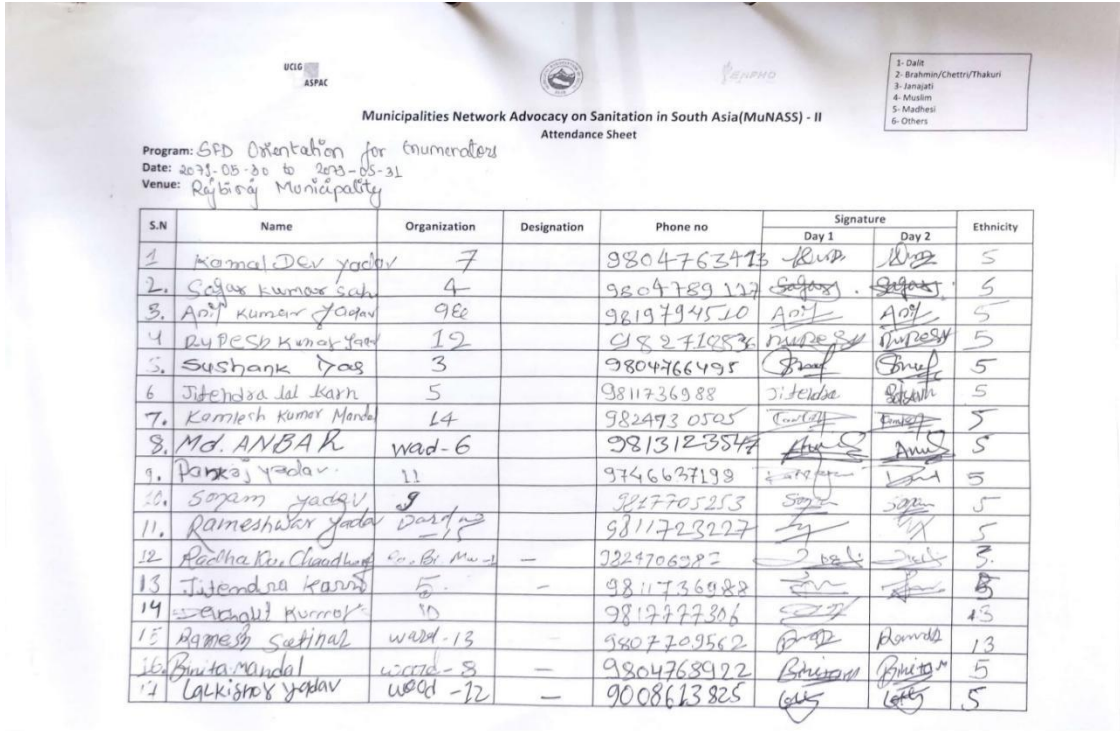 UCLG
ASPAC
ENPHO
1- Dalit
2- Brahmin/Chettri/Thakuri
3- Janajati
4- Muslim
5- Madhesi
6- Others
Municipalities Network Advocacy on Sanitation in South Asia(MuNASS) - II
Attendance Sheet
Program: SFD Orientation for Enumerators
Date: 2079-05-30 to 2079-05-31
Venue: Rajbiraj Municipality
S.N Name Organization Designation Phone no Signature Ethnicity
Day 1 Day 2
1 Kamal Dev Yadav 7 9804763413 5
2. Sagar Kumar Sah 4 9804789127 Sagar Sagar 5
3. Anil Kumar Yadav 9819794510 Anil Anil 5
4 Rupesh Kumar 12 Rupesh Rupesh 5
5. Sushank Das 3 9804766495 5
6 Jitendra lal Karn 5 9811736988 Jitendra 5
7. Kamlesh Kumar Mandal 14 9824930505 5
8. Md. ANBAR wad-6 9813123547 5
9. Pankaj yadav. 11 9746637198 5
10. Sonam yadav 9 9817705253 5
11. Rameshwar Yadav -15 9811723227 5
12 Radha Chaudhary — 9824706982 3.
13 Jitendra Karn 5. – 9811736988 5
14 Kumar 10 9817777306 13
15 Ramesh ward-13 9807709562 13
16. Binita Mandal ward-8 — 9804768922 Binita Binita 5
17 Lalkishor yadav wood -12 — 9008613825 5